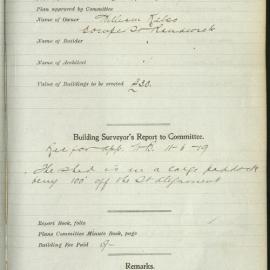 Plan approved by Committee
Name of Owner William Kelso
Cowper St Randwick
Name of Builder
Name of Architect
Value of Buildings to be erected £30.
Building Surveyor's Report to Committee.
Rec for app. 11-6-19
The shed is in a large paddock
being 100' off the St alignment
Report Book, folio
Plans Committee Minute Book, page
Building Fee Paid
Remarks.